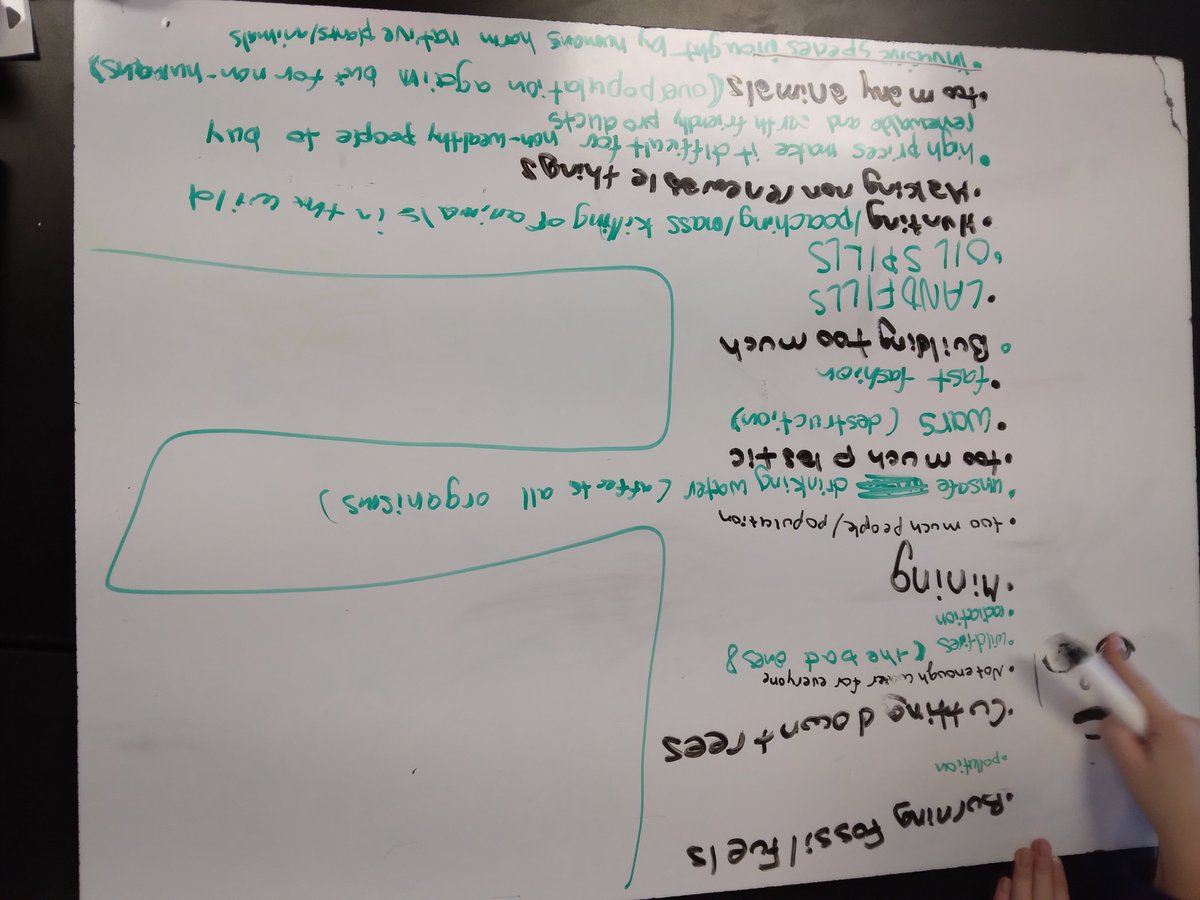 • Burning fossil fuels
• pollution
• Cutting down trees
• Not enough water for everyone
• wildfires (the bad ones)
• radiation
• Mining
• too much people/population
• unsafe drinking water (affects all organisms)
• too much plastic
• wars (destruction)
• fast fashion
• Building too much
• LANDFILLS
• OIL SPILLS
• Hunting/poaching/mass killing of animals in the wild
• Making non renewable things
• high prices make it difficult for non-wealthy people to buy
renewable and earth friendly products
• too many animals (overpopulation again but for non-humans)
• invasive species brought by humans harm native plants/animals